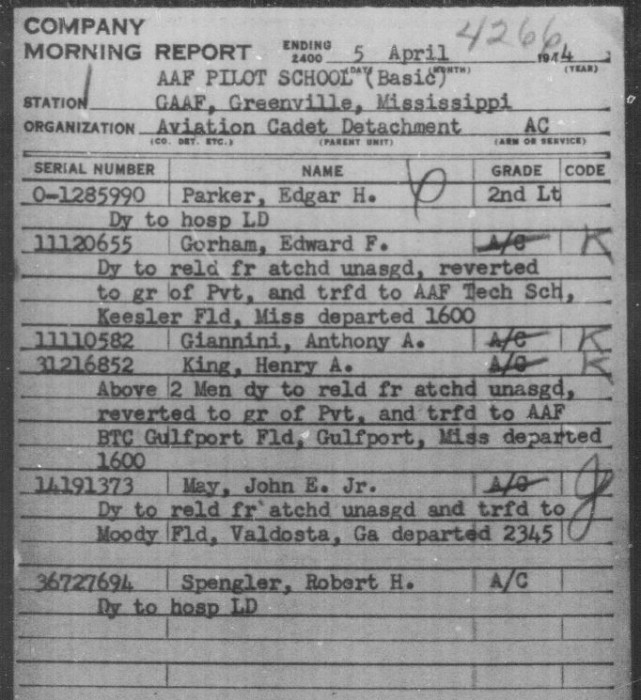 COMPANY
MORNING REPORT ENDING 2400 5 April 1944 4266
(DAY) (MONTH) (YEAR)
AAF PILOT SCHOOL (Basic)
STATION GAAF, Greenville, Mississippi
ORGANIZATION Aviation Cadet Detachment AC
(CO. DET. ETC.) (PARENT UNIT) (ARM OR SERVICE)
SERIAL NUMBER NAME GRADE CODE
0-1285990 Parker, Edgar H. 2nd Lt
Dy to hosp LD
11120655 Gorham, Edward F. A/C K
Dy to reld fr atchd unasgd, reverted
to gr of Pvt, and trfd to AAF Tech Sch,
Keesler Fld, Miss departed 1600
11110582 Giannini, Anthony A. A/C K
31216852 King, Henry A. A/C K
Above 2 Men dy to reld fr atchd unasgd,
reverted to gr of Pvt, and trfd to AAF
BTC Gulfport Fld, Gulfport, Miss departed
1600
14191373 May, John E. Jr. A/C J
Dy to reld fr atchd unasgd and trfd to
Moody Fld, Valdosta, Ga departed 2345
36727694 Spengler, Robert H. A/C
Dy to hosp LD